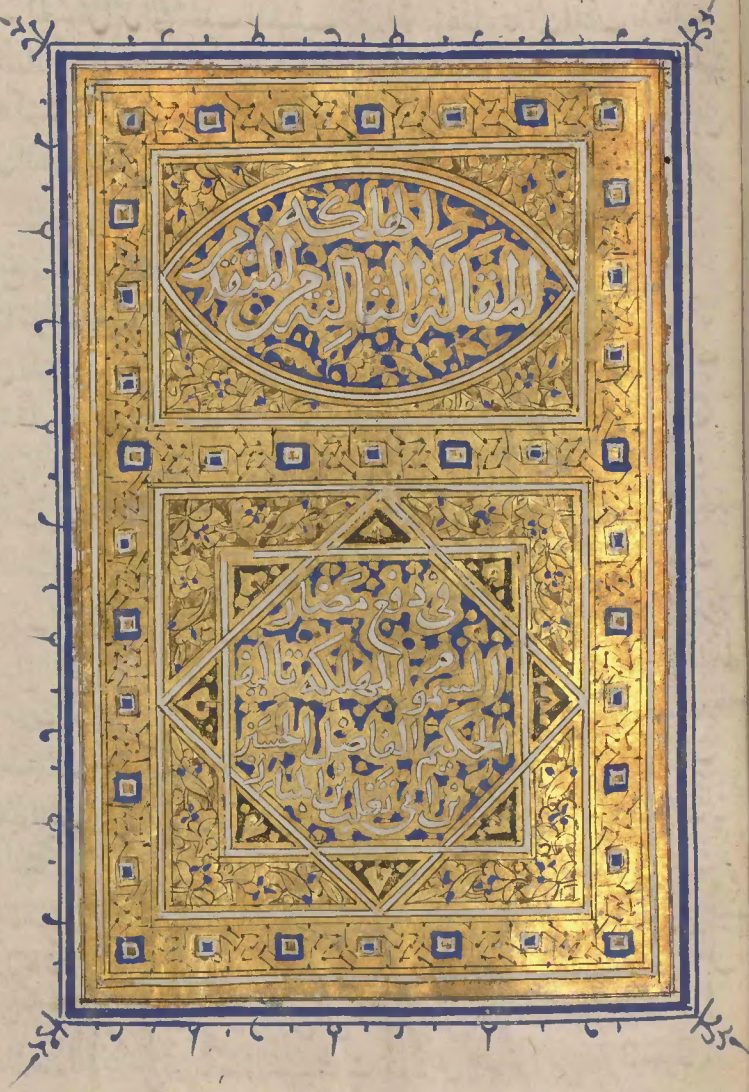 المقالة الثالثة من المنقذ من
الهلكه
في دفع مضار
السموم المهلكة تاليف
الحكيم الفاضل الحسين
بن ابي ثعلب بن المبارك